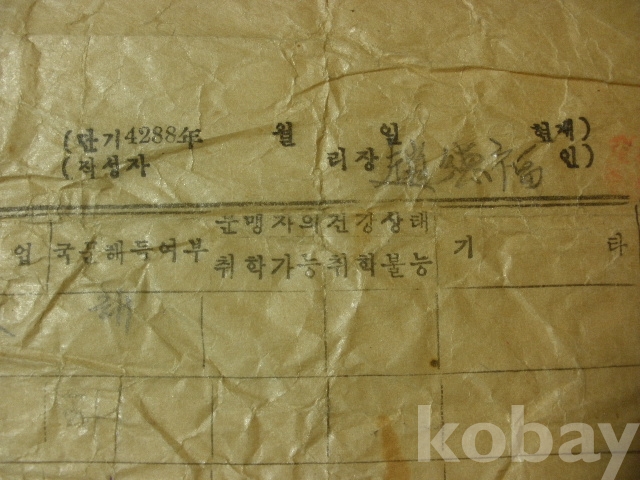 (단기4288年 월 일 현재)
(작성자 리장 인)
문맹자의건강상태
업 국문해득여부 취학가능 취학불능 기 타
해
kobay